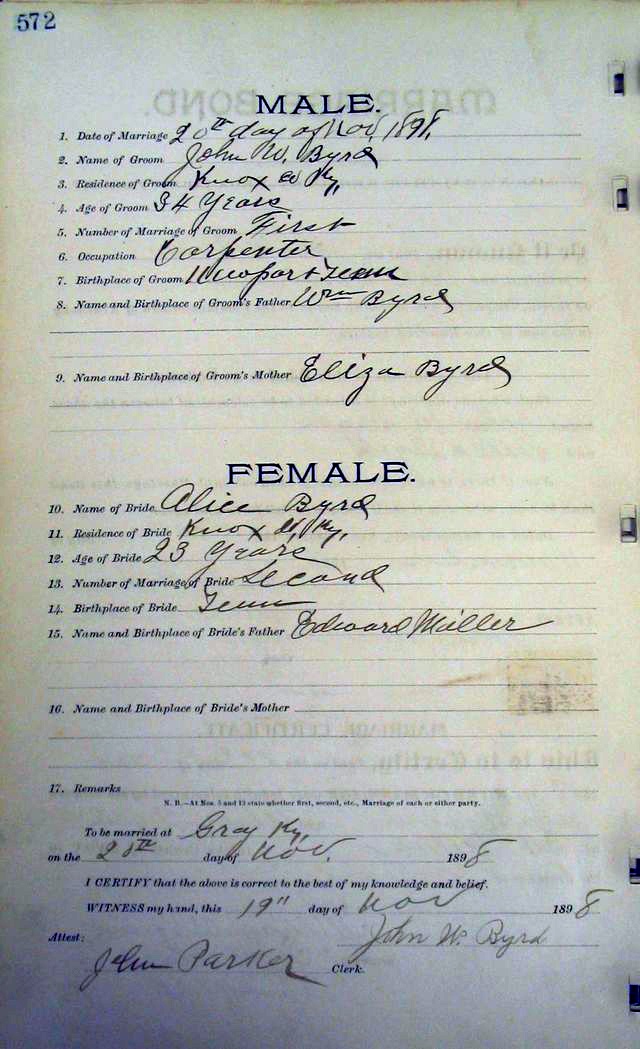 572
MALE.
1. Date of Marriage 20th day of Nov, 1898.
2. Name of Groom John W. Byrd
3. Residence of Groom Knox Co Ky,
4. Age of Groom 34 Years
5. Number of Marriage of Groom First
6. Occupation Carpenter
7. Birthplace of Groom Newport Tenn
8. Name and Birthplace of Groom's Father Wm Byrd
9. Name and Birthplace of Groom's Mother Eliza Byrd
FEMALE.
10. Name of Bride Alice Byrd
11. Residence of Bride Knox Co, Ky,
12. Age of Bride 23 Years
13. Number of Marriage of Bride Second
14. Birthplace of Bride Tenn
15. Name and Birthplace of Bride's Father Edward Miller
16. Name and Birthplace of Bride's Mother
17. Remarks
N. B.—At Nos. 5 and 13 state whether first, second, etc., Marriage of each or either party.
To be married at Gray Ky,
on the 20th day of Nov. 1898
I CERTIFY that the above is correct to the best of my knowledge and belief.
WITNESS my hand, this 19" day of Nov 1898
Attest: John W. Byrd
John Parker Clerk.